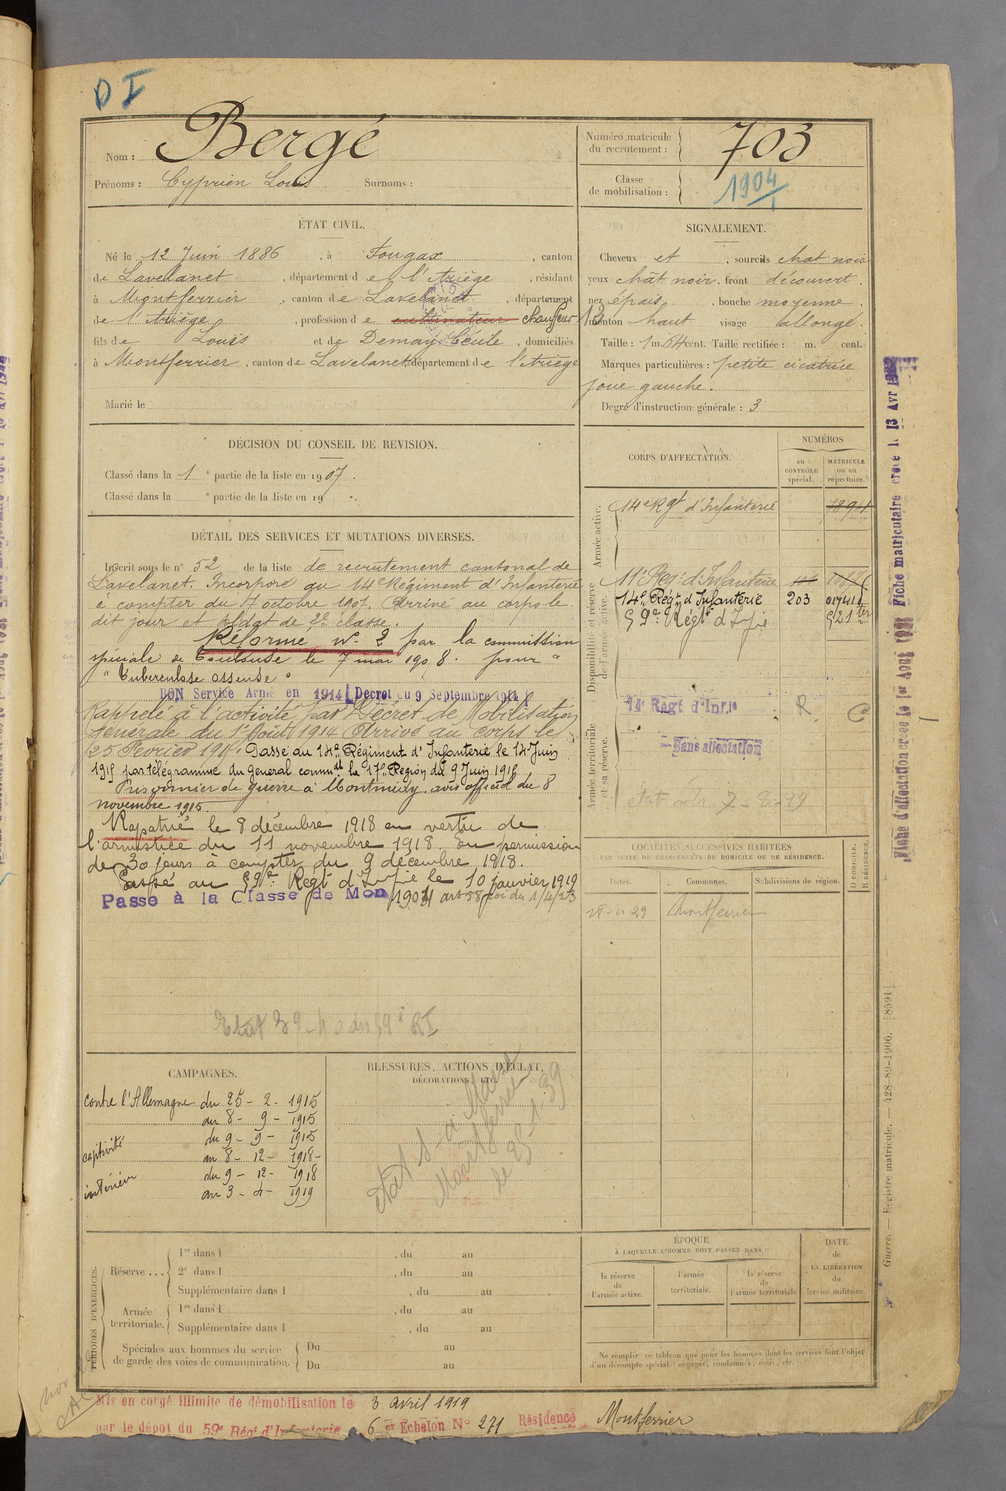 D I
Nom : Bergé
Prénoms : Cyprien Louis Surnoms :
Numéro matricule du recrutement : 703
Classe de mobilisation : 1904
ÉTAT CIVIL.
Né le 12 Juin 1886, à Fougax, canton
de Lavelanet, département de l'Ariège, résidant
à Montferrier, canton de Lavelanet, département
de l'Ariège, profession de cultivateur chauffeur
fils de Louis et de Demay Cécile, domiciliés
à Montferrier, canton de Lavelanet, département de l'Ariège
Marié le
SIGNALEMENT.
Cheveux et, sourcils chat noir
yeux chât noir, front découvert,
nez épais, bouche moyenne,
menton haut visage allongé.
Taille : 1 m. 64 cent. Taille rectifiée : m. cent.
Marques particulières : petite cicatrice
joue gauche.
Degré d'instruction générale : 3
DÉCISION DU CONSEIL DE REVISION.
Classé dans la 1e partie de la liste en 1907.
Classé dans la e partie de la liste en 19 .
DÉTAIL DES SERVICES ET MUTATIONS DIVERSES.
Inscrit sous le n° 52 de la liste de recrutement cantonal de
Lavelanet. Incorporé au 14e Régiment d'Infanterie
à compter du 7 octobre 1907. Arrivé au corps le
dit jour et soldat de 2e classe.
Réformé n° 2 par la commission
spéciale de Toulouse le 7 mai 1908. pour "
"Tuberculose osseuse"
BON Service Armé en 1914 (Décret du 9 Septembre 1914)
Rappelé à l'activité par Décret de Mobilisation
Générale du 1er Août 1914 Arrivé au corps le
25 Février 1915 Passé au 14e Régiment d'Infanterie le 14 Juin
1915 par télégramme du Général commdt la 17e Région du 9 Juin 1915
Prisonnier de guerre à Montmédy avis officiel du 8
novembre 1915
Rapatrié le 8 décembre 1918 en vertu de
l'armistice du 11 novembre 1918. en permission
de 30 jours à compter du 9 décembre 1918.
Passé au 59e Régt d'Infie le 10 janvier 1919
Passé à la Classe de Mon 1904 art 58 loi du 1/4/23
CORPS D'AFFECTATION.
NUMÉROS
au CONTRÔLE spécial.
MATRICULE ou au répertoire.
Armée active.
14e Rgt d'Infanterie
Disponibilité et réserve de l'armée active.
11e Régt d'Infanterie
14e Régt d'Infanterie 203 017411
59e Régt d'Infie
Armée territoriale et sa réserve.
14e Régt d'Infie R C
Sans affectation
LOCALITÉS SUCCESSIVES HABITÉES
PAR SUITE DE CHANGEMENTS DE DOMICILE OU DE RÉSIDENCE.
Dates. Communes. Subdivisions de région. D DOMICILE. R RÉSIDENCE.
Montferrier
CAMPAGNES.
contre l'Allemagne du 25 - 2 - 1915
au 8 - 9 - 1915
captivité du 9 - 9 - 1915
au 8 - 12 - 1918
intérieur du 9 - 12 - 1918
au 3 - 4 - 1919
BLESSURES, ACTIONS D'ÉCLAT,
DÉCORATIONS, ETC.
PÉRIODES D'EXERCICES.
Réserve ... 1re dans l , du au
2e dans l , du au
Supplémentaire dans l , du au
Armée territoriale. 1re dans l , du au
Supplémentaire dans l , du au
Spéciales aux hommes du service de garde des voies de communication. Du au
Du au
ÉPOQUE
À LAQUELLE L'HOMME DOIT PASSER DANS :
la réserve de l'armée active.
l'armée territoriale.
la réserve de l'armée territoriale
DATE de LA LIBÉRATION du service militaire.
Ne remplir ce tableau que pour les hommes dont les services font l'objet
d'un décompte spécial (engagés, condamnés, omis, etc.
Mis en congé illimité de démobilisation le 3 avril 1919
par le dépôt du 59e Régt d'Infanterie 6 er Echelon N° 271 Résidence Montferrier
Fiche d'affectation créée le 1er Août 1921 Fiche matriculaire créée le 13 Avr
Guerre. — Registre matricule. — 428-89-1906. [8591]